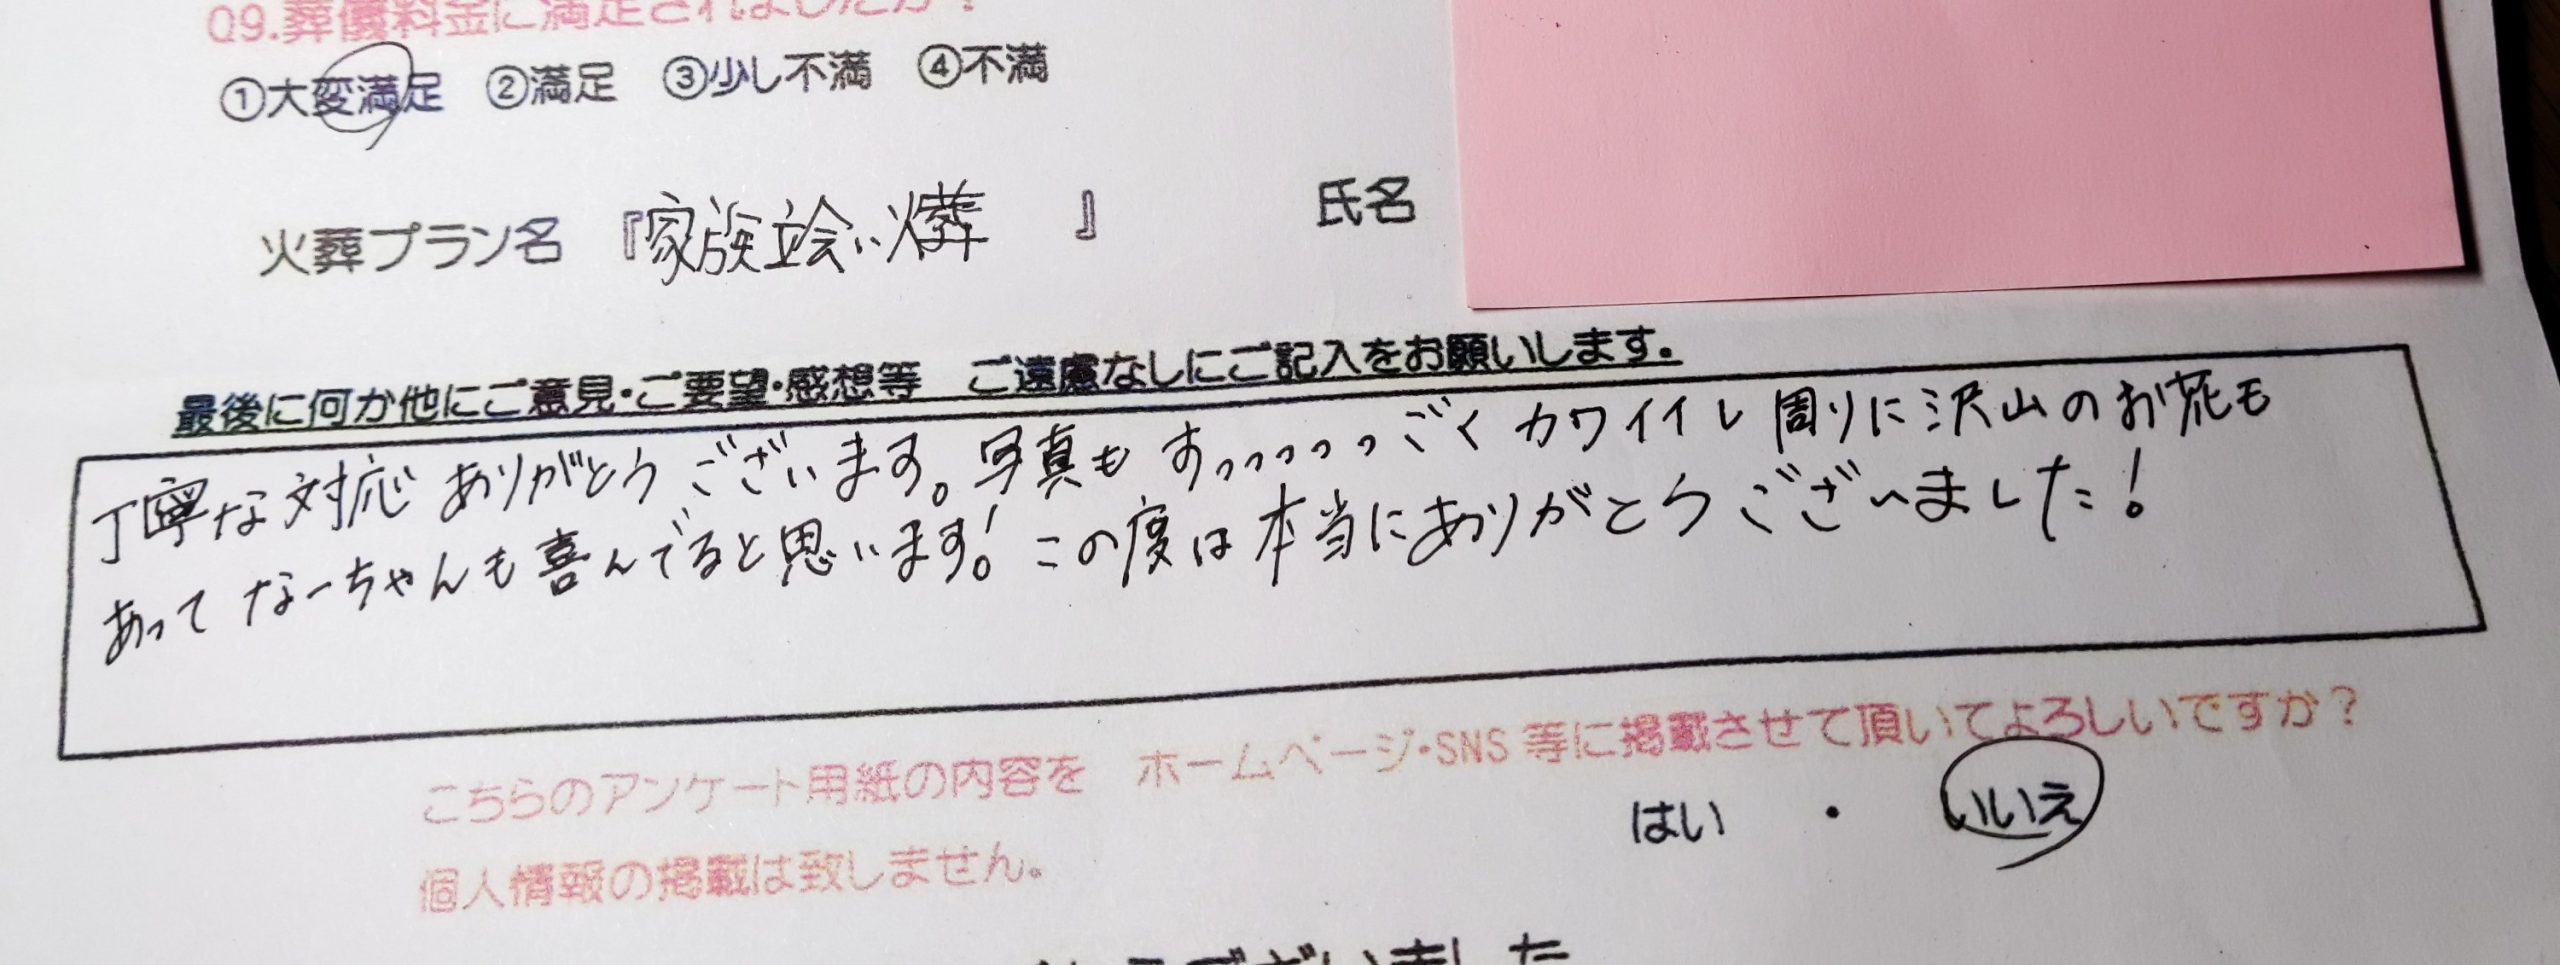 Q9.葬儀料金に満足されましたか？
①大変満足 ②満足 ③少し不満 ④不満
火葬プラン名 『家族立会い火葬 』 氏名
最後に何か他にご意見・ご要望・感想等 ご遠慮なしにご記入をお願いします。
丁寧な対応ありがとうございます。写真もすっっっっっごくカワイイし周りに沢山のお花も
あってなーちゃんも喜んでると思います！この度は本当にありがとうございました！
こちらのアンケート用紙の内容を ホームページ・SNS等に掲載させて頂いてよろしいですか？
はい ・ いいえ
個人情報の掲載は致しません。
ございました